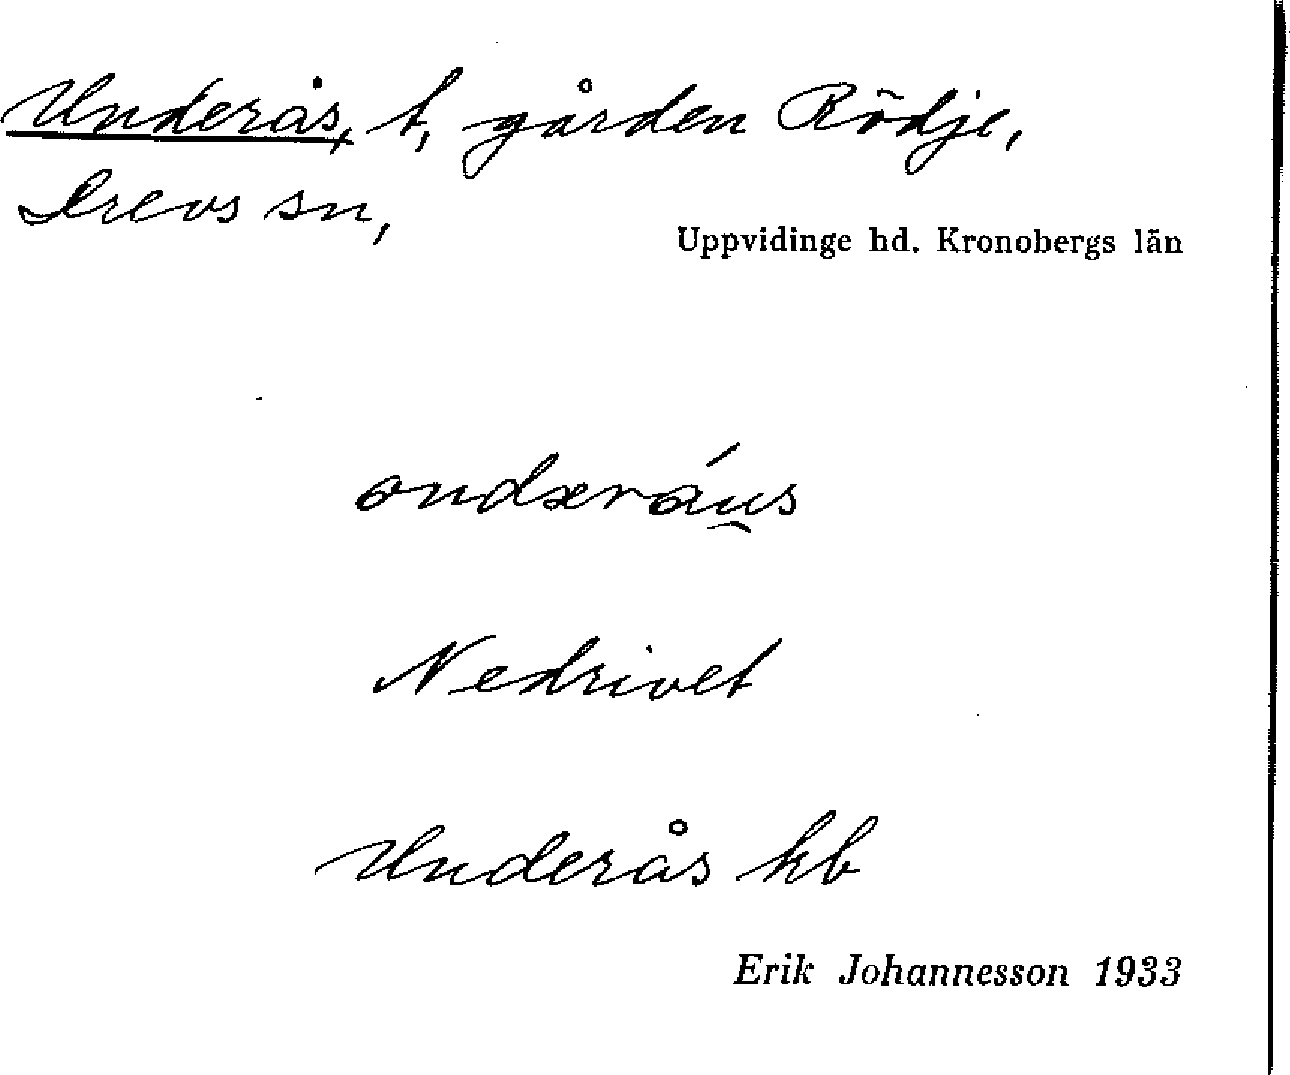 Underås, t, gården Rödje,
Drevs sn,
Uppvidinge hd. Kronobergs län
ondæráu̯s
Nedrivet
Underås kb
Erik Johannesson 1933